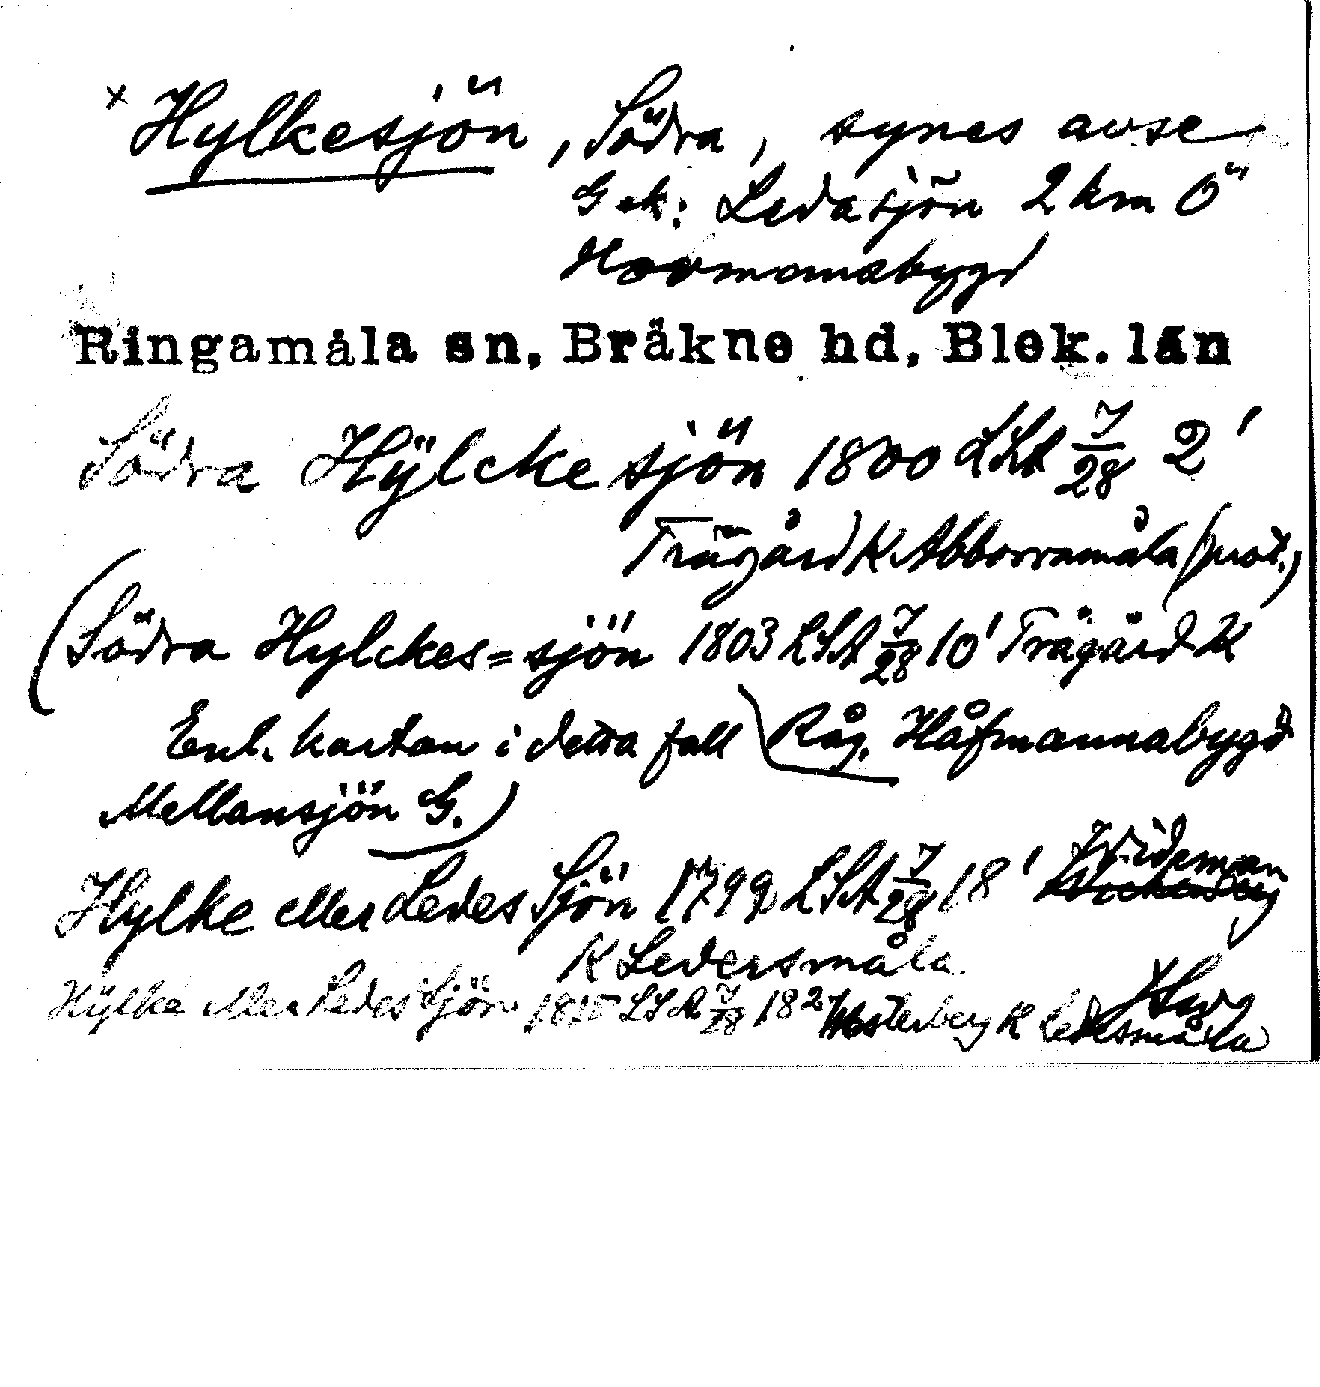 x Hylkesjön, Södra, synes avse
Gek: Ledasjön 2 km Ö
Hovmansbygd
Ringamåla sn, Bräkne hd, Blek. län
Södra Hÿlcke sjön 1800 LSA 7/28 2'
Trägård K Abborramåla (prot.)
(Södra Hylckes=sjön 1803 LSA 7/28 10' Trägård K
Enl. kartan i detta fall Råg. Håfmannabygd
Mellansjön G.)
Hylke eller Ledes Sjön 1799 LSA 7/28 18' Wideman
K Ledersmåla
Hÿlke eller Ledes Sjön 1815 LSA 7/28 18 2 Westerberg K Ledesmåla